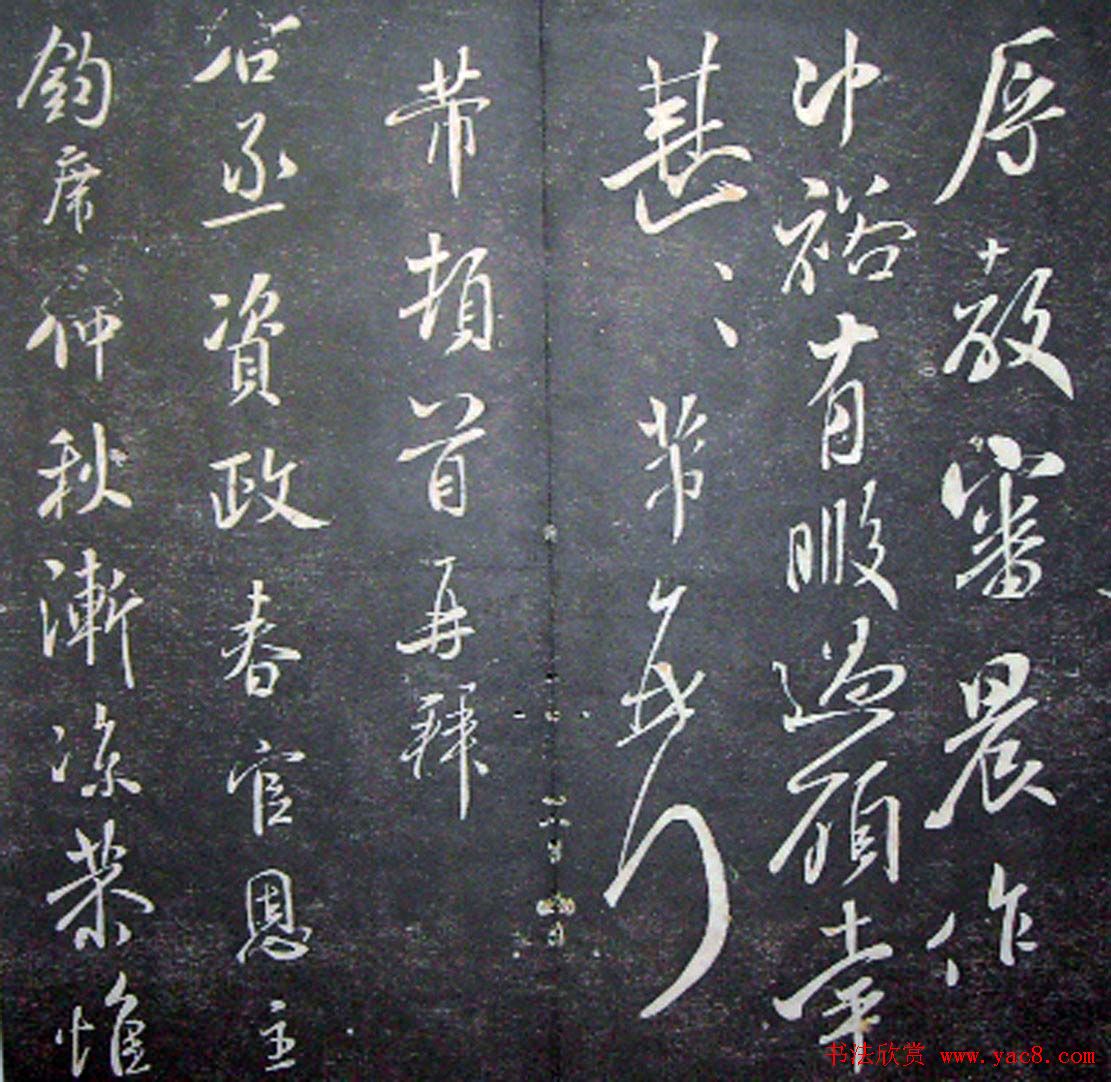 辱教審晨作
冲裕有暇過顧幸
甚〻芾
芾頓首再拜
右丞資政春官恩主
鈞席仲秋漸涼恭惟
书法欣赏 www.yac8.com